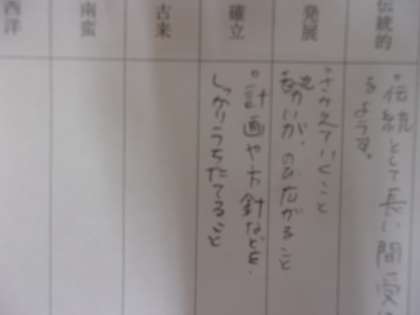 伝統的
。伝統として長い間受
るようす。
発展
。さかえていくこと
勢いが、のびひろがること
確立
。計画や方針などを、
しっかりうちたてること
古来
南蛮
西洋